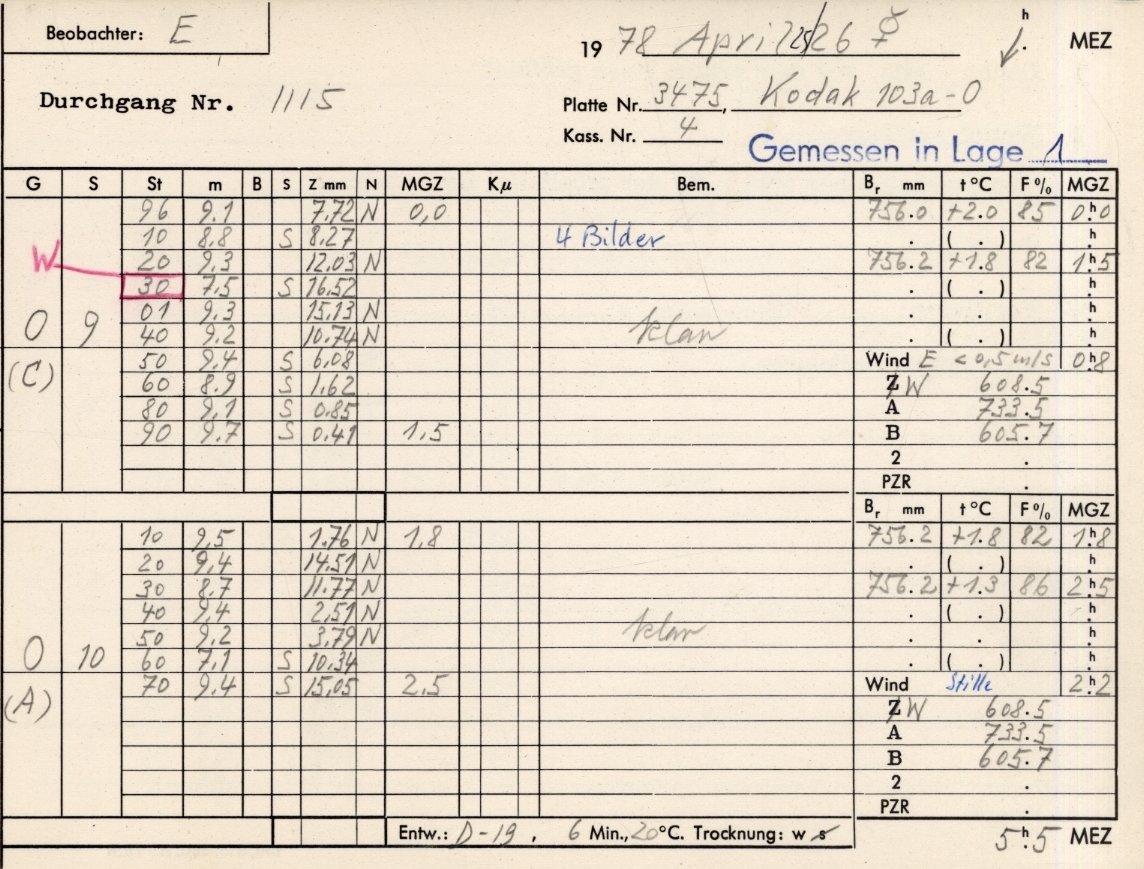 Beobachter: E
19 78 April 25/26 ☿ h . MEZ
Durchgang Nr. 1115
Platte Nr. 3475, Kodak 103a-O
Kass. Nr. 4
Gemessen in Lage 1
G S St m B S Z mm N MGZ Kμ Bem. Br mm t°C F% MGZ
96 9.1 7,72 N 0,0 756.0 +2.0 85 0h.0
10 8.8 S 8,27 4 Bilder . ( . ) h.
W 20 9,3 12,03 N 756.2 +1.8 82 1h.5
30 7,5 S 16,52 . ( . ) h.
0 9 01 9.3 15,13 N . . h.
40 9.2 10.74 N klar . ( . ) h.
(C) 50 9,4 S 6,08 Wind E <0,5 m/s 0h.8
60 8.9 S 1,62 Z W 608.5
80 9,1 S 0,85 A 733.5
90 9.7 S 0,41 1,5 B 605.7
2 .
PZR .
Br mm t°C F% MGZ
10 9,5 1.76 N 1,8 756.2 +1.8 82 1h.8
20 9,4 14.51 N . ( . ) h.
30 8.7 11.77 N 756.2 +1.3 86 2h.5
40 9,4 2,51 N . ( . ) h.
50 9,2 3,79 N klar . . h.
0 10 60 7,1 S 10,34 . ( . ) h.
(A) 70 9.4 S 15,05 2,5 Wind Stille 2h.2
Z W 608.5
A 733.5
B 605.7
2 .
PZR .
Entw.: D-19, 6 Min., 20°C. Trocknung: w s 5h.5 MEZ